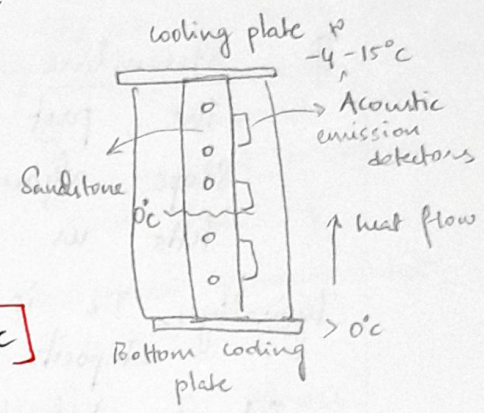 cooling plate
-4 - -15°C
Acoustic
emission
detectors
Sandstone
0°C
heat flow
> 0°C
Bottom cooling
plate